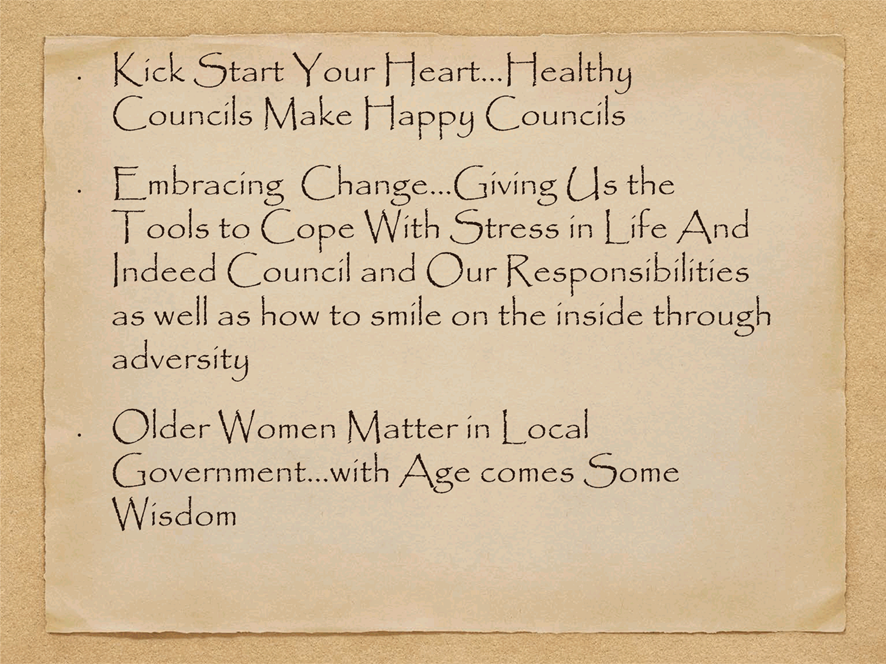 • Kick Start Your Heart...Healthy
Councils Make Happy Councils
• Embracing Change...Giving Us the
Tools to Cope With Stress in Life And
Indeed Council and Our Responsibilities
as well as how to smile on the inside through
adversity
• Older Women Matter in Local
Government...with Age comes Some
Wisdom